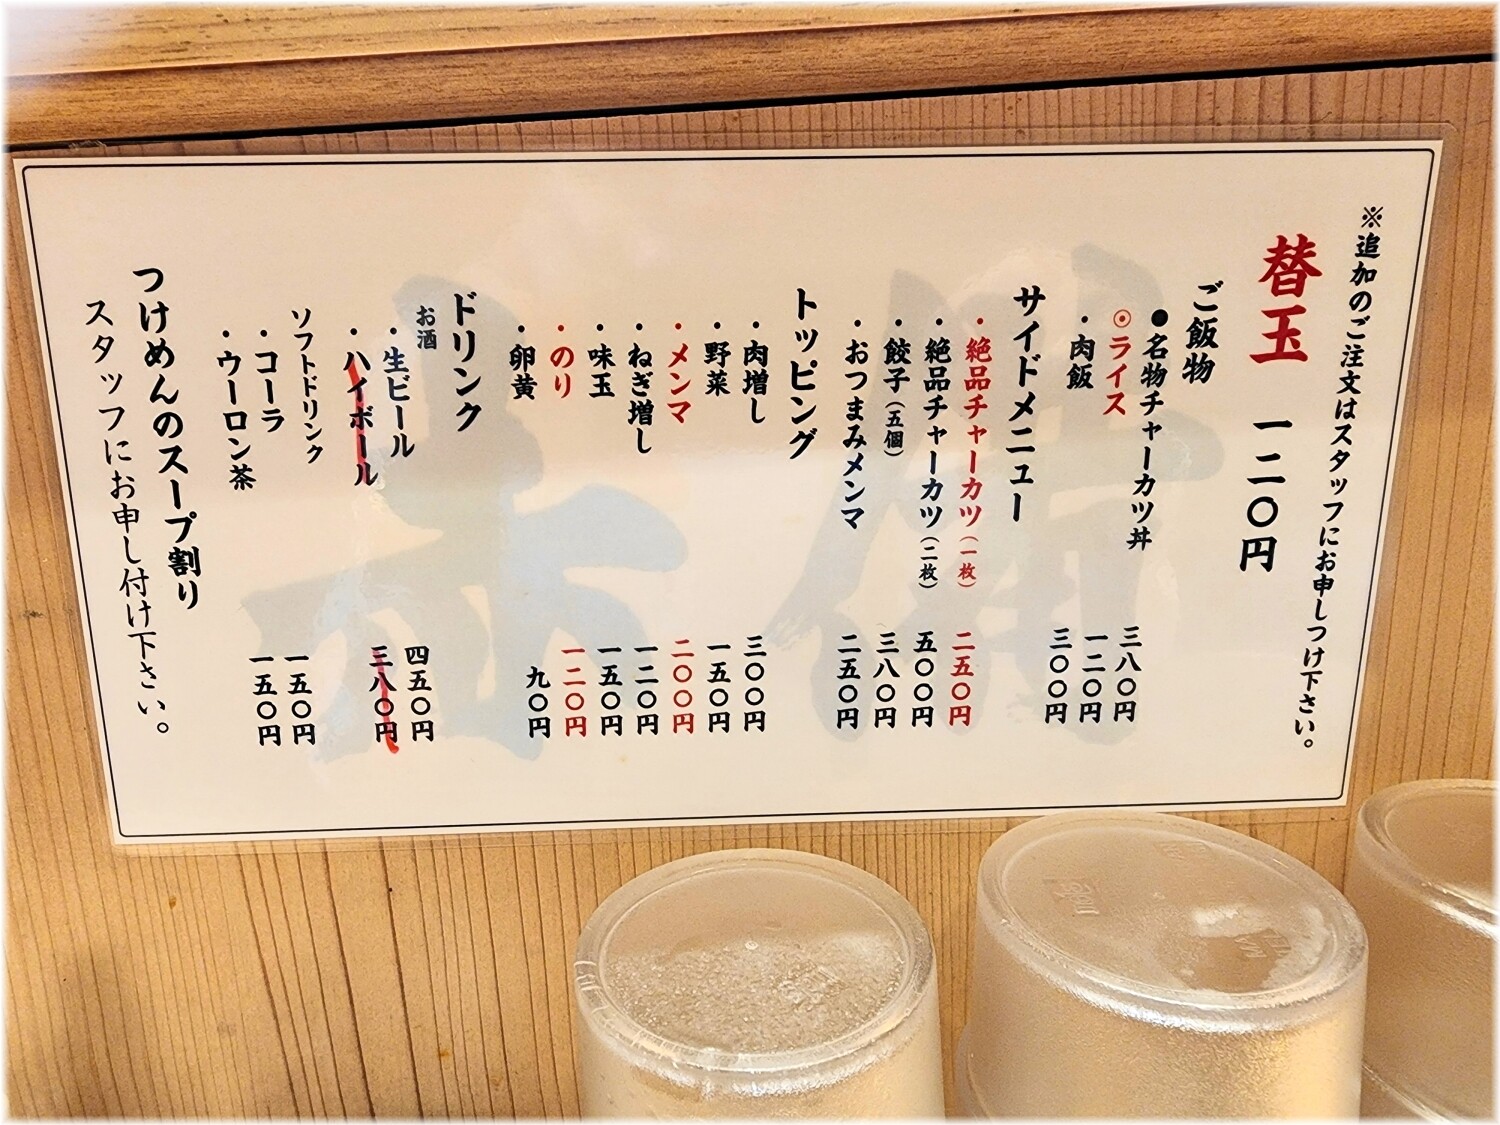 ※追加のご注文はスタッフにお申しつけ下さい。
替玉 一二〇円
ご飯物
●名物チャーカツ丼 三八〇円
◎ライス 一二〇円
・肉飯 三〇〇円
サイドメニュー
・絶品チャーカツ(一枚) 二五〇円
・絶品チャーカツ(二枚) 五〇〇円
・餃子(五個) 三八〇円
・おつまみメンマ 二五〇円
トッピング
・肉増し 三〇〇円
・野菜 一五〇円
・メンマ 二〇〇円
・ねぎ増し 一二〇円
・味玉 一五〇円
・のり 一二〇円
・卵黄 九〇円
ドリンク
お酒
・生ビール 四五〇円
・ハイボール 三八〇円
ソフトドリンク
・コーラ 一五〇円
・ウーロン茶 一五〇円
つけめんのスープ割り
スタッフにお申し付け下さい。